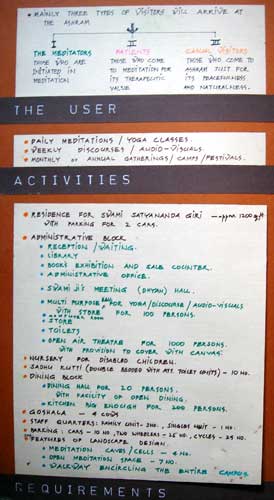 • MAINLY THREE TYPES OF VISITORS WILL ARRIVE AT
THE ASHRAM
THE MEDITATORS PATIENTS CASUAL VISITORS
THOSE WHO ARE THOSE WHO COME THOSE WHO COME TO
INITIATED IN TO MEDITATION FOR ASHRAM JUST FOR
MEDITATION ITS THERAPEUTIC ITS PEACEFULNESS
VALUE AND NATURALNESS.
THE USER
• DAILY MEDITATIONS / YOGA CLASSES.
• WEEKLY DISCOURSES / AUDIO-VISUALS
• MONTHLY OR ANNUAL GATHERINGS / CAMPS / FESTIVALS.
ACTIVITIES
• RESIDENCE FOR SWAMI SATYANANDA GIRI — 1200
WITH PARKING FOR 2 CARS.
• ADMINISTRATIVE BLOCK
• RECEPTION / WAITING.
• LIBRARY
• BOOKS EXHIBITION AND SALE COUNTER.
• ADMINISTRATIVE OFFICE.
• SWAMIJI'S MEETING (DHYAN) HALL.
• MULTI PURPOSE HALL FOR YOGA / DISCOURSE / AUDIO-VISUALS
WITH STORE FOR 100 PERSONS.
ROOM
• STORE
• TOILETS
• OPEN AIR THEATRE FOR 1000 PERSONS
WITH PROVISION TO COVER WITH CANVAS.
• NURSERY FOR DISABLED CHILDREN.
• SADHU KUTTI (DOUBLE BEDDED WITH ATT. TOILET UNITS) - 10 NO.
• DINING BLOCK
• DINING HALL FOR 20 PERSONS
WITH FACILITY OF OPEN DINING.
• KITCHEN BIG ENOUGH FOR 200 PERSONS.
• GOSHALA — 4 COWS
• STAFF QUARTERS: FAMILY UNIT - 2NO., SINGLES UNIT - 1 NO.
• PARKING: CARS - 10 NO, TWO WHEELERS - 25 NO, CYCLES - 25 NO.
• FEATURES OF LANDSCAPE DESIGN.
• MEDITATION CAVES / CELLS — 4 NO.
• OPEN MEDITATION SPACE — 7 NO.
• WALKWAY ENCIRCLING THE ENTIRE CAMPUS.
REQUIREMENTS